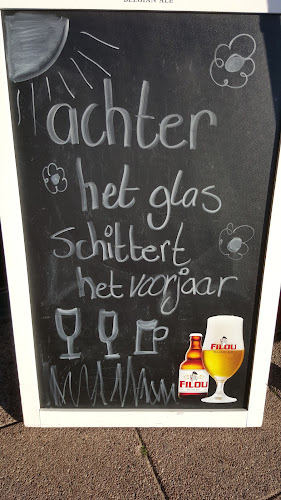 BELGIAN ALE
achter
het glas
schittert
het voorjaar
FILOU
FILOU